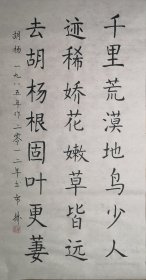 千里荒漠地鸟少人
迹稀娇花嫩草皆远
去胡杨根固叶更萋
胡杨 一九八五年作二零一二年五市 林